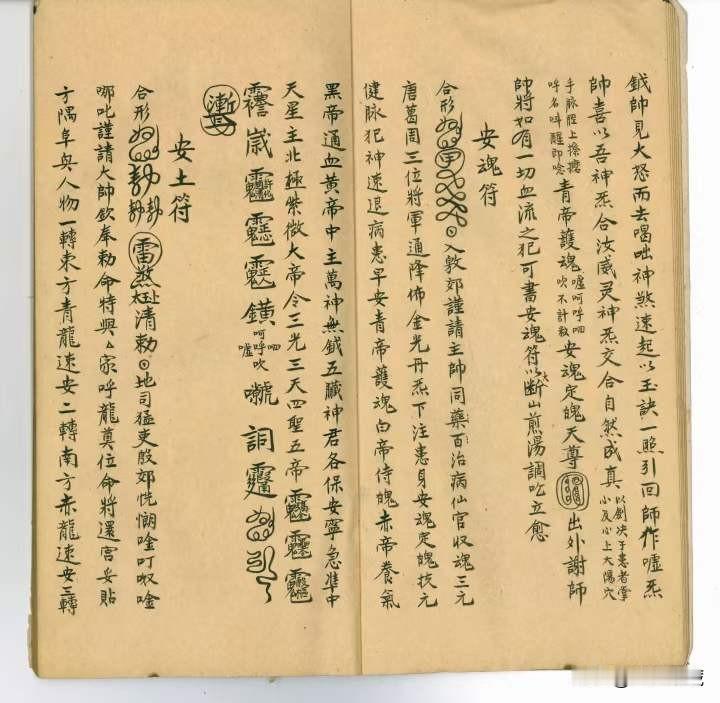 鉞帥見大怒而去喝咄神煞速起以玉訣一照引回師作噓炁
帥喜以吾神炁合汝威灵神炁交合自然成真
以劍決于患者掌
小及心上大陽穴
手脉
上
呼名呌醒即唸
青帝護魂
噓呵呼呬
吹不計数
安魂定魄天尊
出外謝師
帥將如有一切血流之犯可書安魂符以断山煎湯調吃立愈
安魂符
合形
入敦郊謹請主帥同藥百治病仙官收魂三元
唐葛周三位將軍通降佈金光丹炁下注患身安魂定魄扶元
健脉犯神速退病患早安青帝護魂白帝侍魄赤帝養氣
黑帝通血黄帝中主萬神無鉞五臟神君各保安寧急準中
天星主北極紫微大帝令三光三天四聖五帝
歲
呵呼呬
噓 吹
詞
安土符
合形
雷煞
清勅
地司猛吏殷郊
唵叮呶唵
哪叱謹請大帥欽奉勅命特與厶家呼龍奠位命將還宮妥貼
方隅阜與人物一轉東方青龍速安二轉南方赤龍速安三轉